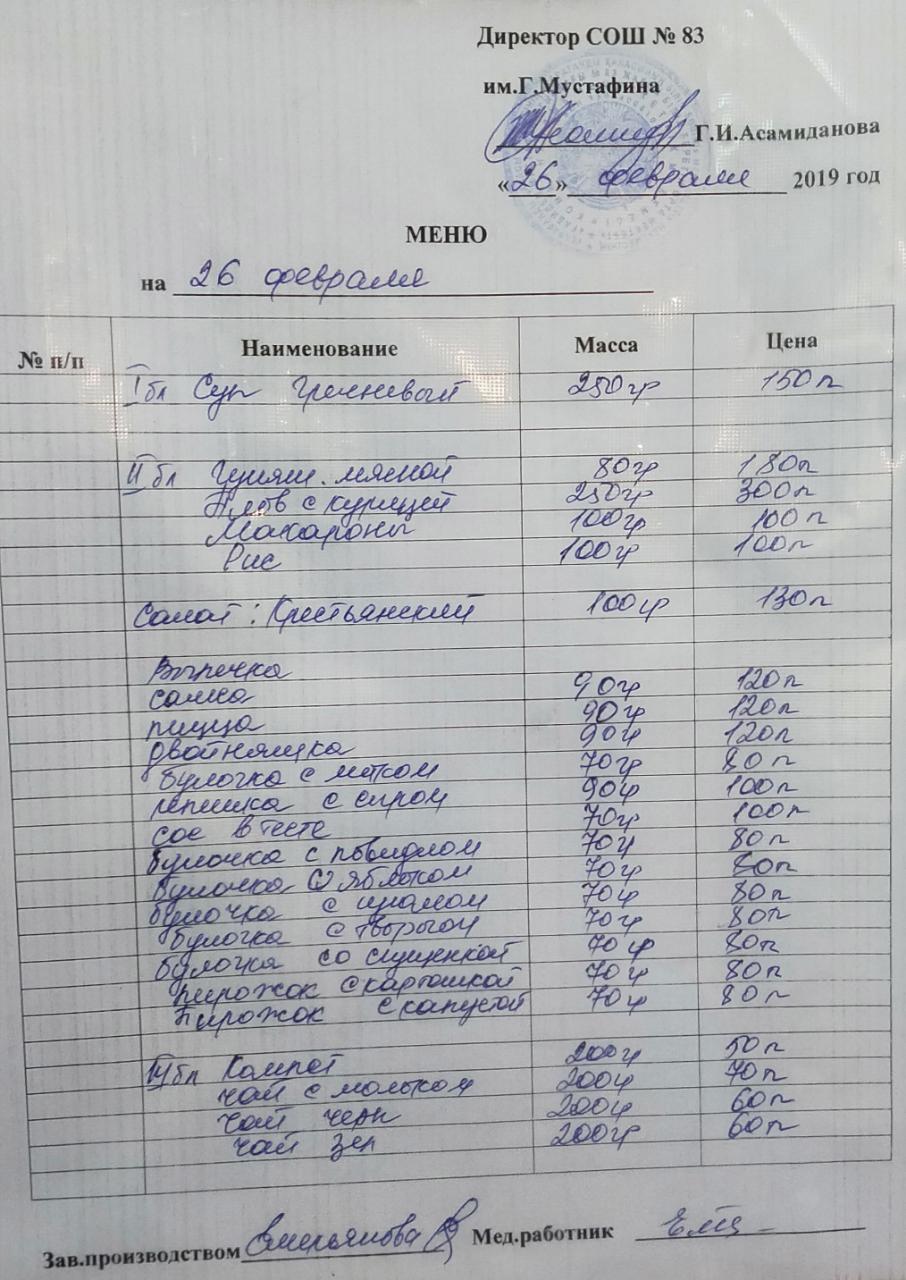 Директор СОШ № 83
им.Г.Мустафина
Г.И.Асамиданова
«26» февраля 2019 год
МЕНЮ
на 26 февраля
№ п/п Наименование Масса Цена
I бл Суп гречневый 250гр 150п
II бл Гуляш. мясной 80гр 180п
Плов с курицей 250гр 300п
Макароны 100гр 100п
Рис 100гр 100п
Салат : Крестьянский 100гр 130п
Выпечка
самса 90гр 120п
пицца 90гр 120п
двойняшка 90гр 120п
булочка с маком 70гр 80п
лепешка с сыром 90гр 100п
сос в тесте 70гр 100п
булочка с повидлом 70гр 80п
булочка с яблоком 70гр 80п
булочка с 70гр 80п
булочка с творогом 70гр 80п
булочка со сгущенкой 70гр 80п
пирожок с картошкой 70гр 80п
пирожок с капустой 70гр 80п
III бл Компот 200гр 50п
чай с молоком 200гр 70п
чай черн 200гр 60п
чай зел 200гр 60п
Зав.производством Емельянова Мед.работник